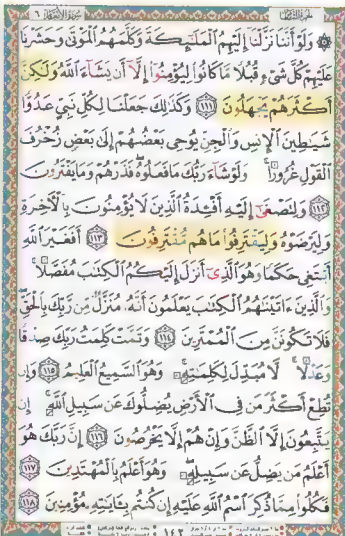 الجزء الثامن سورة الأنعام ٦
۞ وَلَوْ أَنَّنَا نَزَّلْنَا إِلَيْهِمُ الْمَلَٰٓئِكَةَ وَكَلَّمَهُمُ الْمَوْتَىٰ وَحَشَرْنَا
عَلَيْهِمْ كُلَّ شَىْءٍ قُبُلًا مَّا كَانُوا لِيُؤْمِنُوٓا إِلَّآ أَن يَشَآءَ اللَّهُ وَلَٰكِنَّ
أَكْثَرَهُمْ يَجْهَلُونَ ﴿١١١﴾ وَكَذَٰلِكَ جَعَلْنَا لِكُلِّ نَبِىٍّ عَدُوًّا
شَيَٰطِينَ الْإِنسِ وَالْجِنِّ يُوحِى بَعْضُهُمْ إِلَىٰ بَعْضٍ زُخْرُفَ
الْقَوْلِ غُرُورًا ۚ وَلَوْ شَآءَ رَبُّكَ مَا فَعَلُوهُ ۖ فَذَرْهُمْ وَمَا يَفْتَرُونَ
﴿١١٢﴾ وَلِتَصْغَىٰٓ إِلَيْهِ أَفْـِٔدَةُ الَّذِينَ لَا يُؤْمِنُونَ بِالْءَاخِرَةِ
وَلِيَرْضَوْهُ وَلِيَقْتَرِفُوا مَا هُم مُّقْتَرِفُونَ ﴿١١٣﴾ أَفَغَيْرَ اللَّهِ
أَبْتَغِى حَكَمًا وَهُوَ الَّذِىٓ أَنزَلَ إِلَيْكُمُ الْكِتَٰبَ مُفَصَّلًا ۚ
وَالَّذِينَ ءَاتَيْنَٰهُمُ الْكِتَٰبَ يَعْلَمُونَ أَنَّهُۥ مُنَزَّلٌ مِّن رَّبِّكَ بِالْحَقِّ ۖ
فَلَا تَكُونَنَّ مِنَ الْمُمْتَرِينَ ﴿١١٤﴾ وَتَمَّتْ كَلِمَتُ رَبِّكَ صِدْقًا
وَعَدْلًا ۚ لَّا مُبَدِّلَ لِكَلِمَٰتِهِۦ ۚ وَهُوَ السَّمِيعُ الْعَلِيمُ ﴿١١٥﴾ وَإِن
تُطِعْ أَكْثَرَ مَن فِى الْأَرْضِ يُضِلُّوكَ عَن سَبِيلِ اللَّهِ ۚ إِن
يَتَّبِعُونَ إِلَّا الظَّنَّ وَإِنْ هُمْ إِلَّا يَخْرُصُونَ ﴿١١٦﴾ إِنَّ رَبَّكَ هُوَ
أَعْلَمُ مَن يَضِلُّ عَن سَبِيلِهِۦ ۖ وَهُوَ أَعْلَمُ بِالْمُهْتَدِينَ ﴿١١٧﴾
فَكُلُوا مِمَّا ذُكِرَ اسْمُ اللَّهِ عَلَيْهِ إِن كُنتُم بِـَٔايَٰتِهِۦ مُؤْمِنِينَ ﴿١١٨﴾
١٤٢